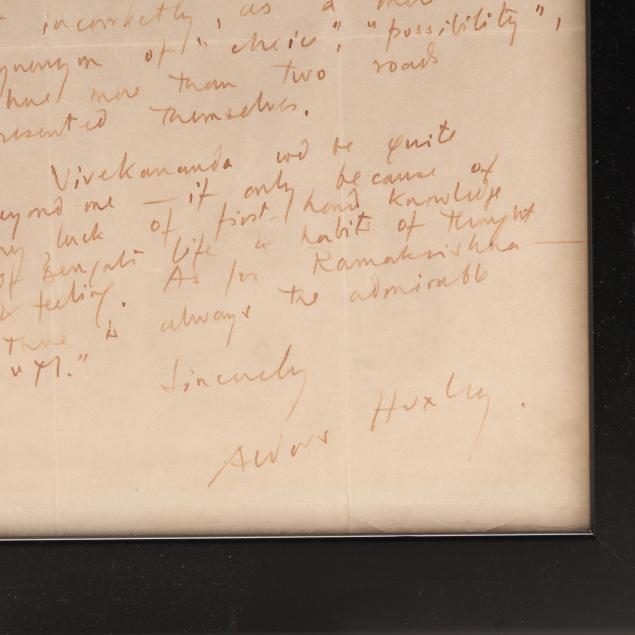 incorrectly, as a mere
synonym of "choice", "possibility",
have more than two roads
resented themselves.
Vivekananda wd be quite
eyond me — if only because of
my lack of first-hand knowledge
of Bengali life & habits of thought
& feeling. As for Ramakrishna —
there is always the admirable
"M."
Sincerely
Aldous Huxley.